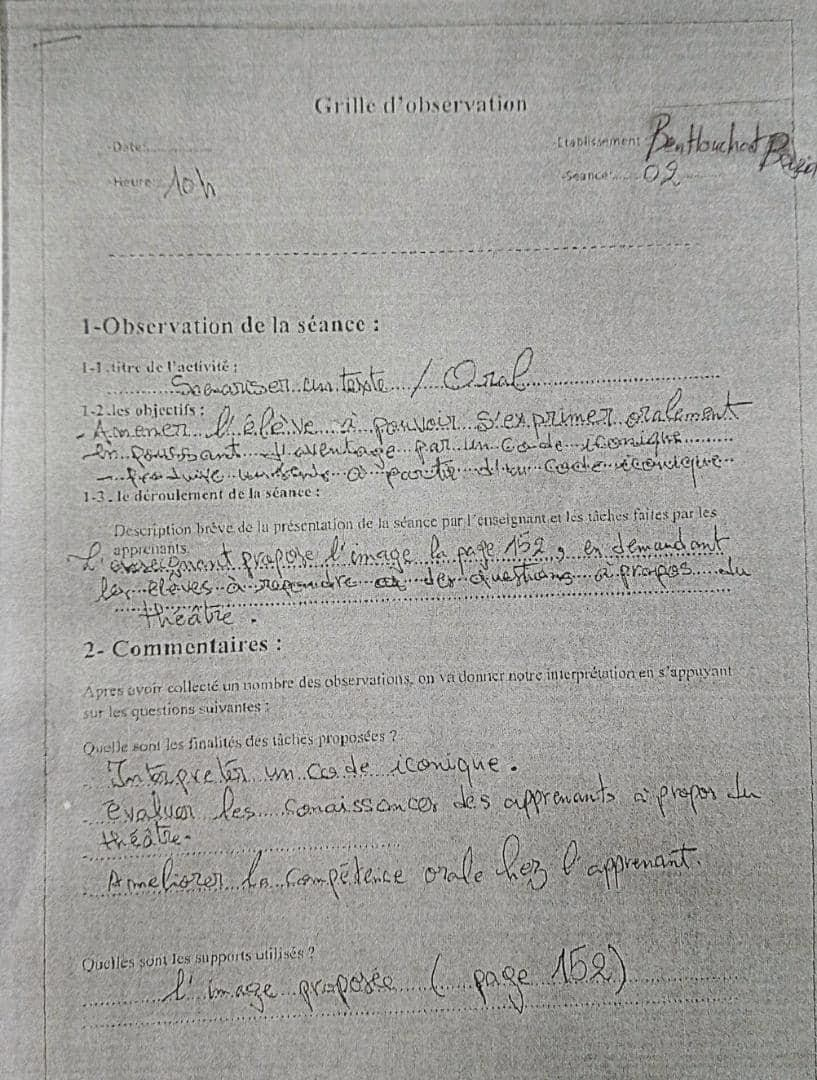 Grille d'observation
-Date:............
-Etablissement Benthouchat
-Heure: 10h
-Séance:...... 02
1-Observation de la séance :
1-1.titre de l'activité :
un texte / Oral
1-2.les objectifs :
- Amener l'élève à pouvoir s'exprimer oralement
en poussant d'aventage par un code iconique
- Produire à partir d'un code iconique
1-3. le déroulement de la séance :
Description brève de la présentation de la séance par l'enseignant et les tâches faites par les
apprenants
L'enseignant propose l'image la page 152, en demandant
les élèves à repondre des questions à propos du
théâtre.
2- Commentaires :
Apres avoir collecté un nombre des observations, on va donner notre interprétation en s'appuyant
sur les questions suivantes :
Quelle sont les finalités des tâches proposées ?
Interpreter un code iconique.
évaluer les conaissances des apprenants à propos du
théâtre.
Ameliorer la compétence orale chez l'apprenant.
Quelles sont les supports utilisés ?
l'image proposée ( page 152)